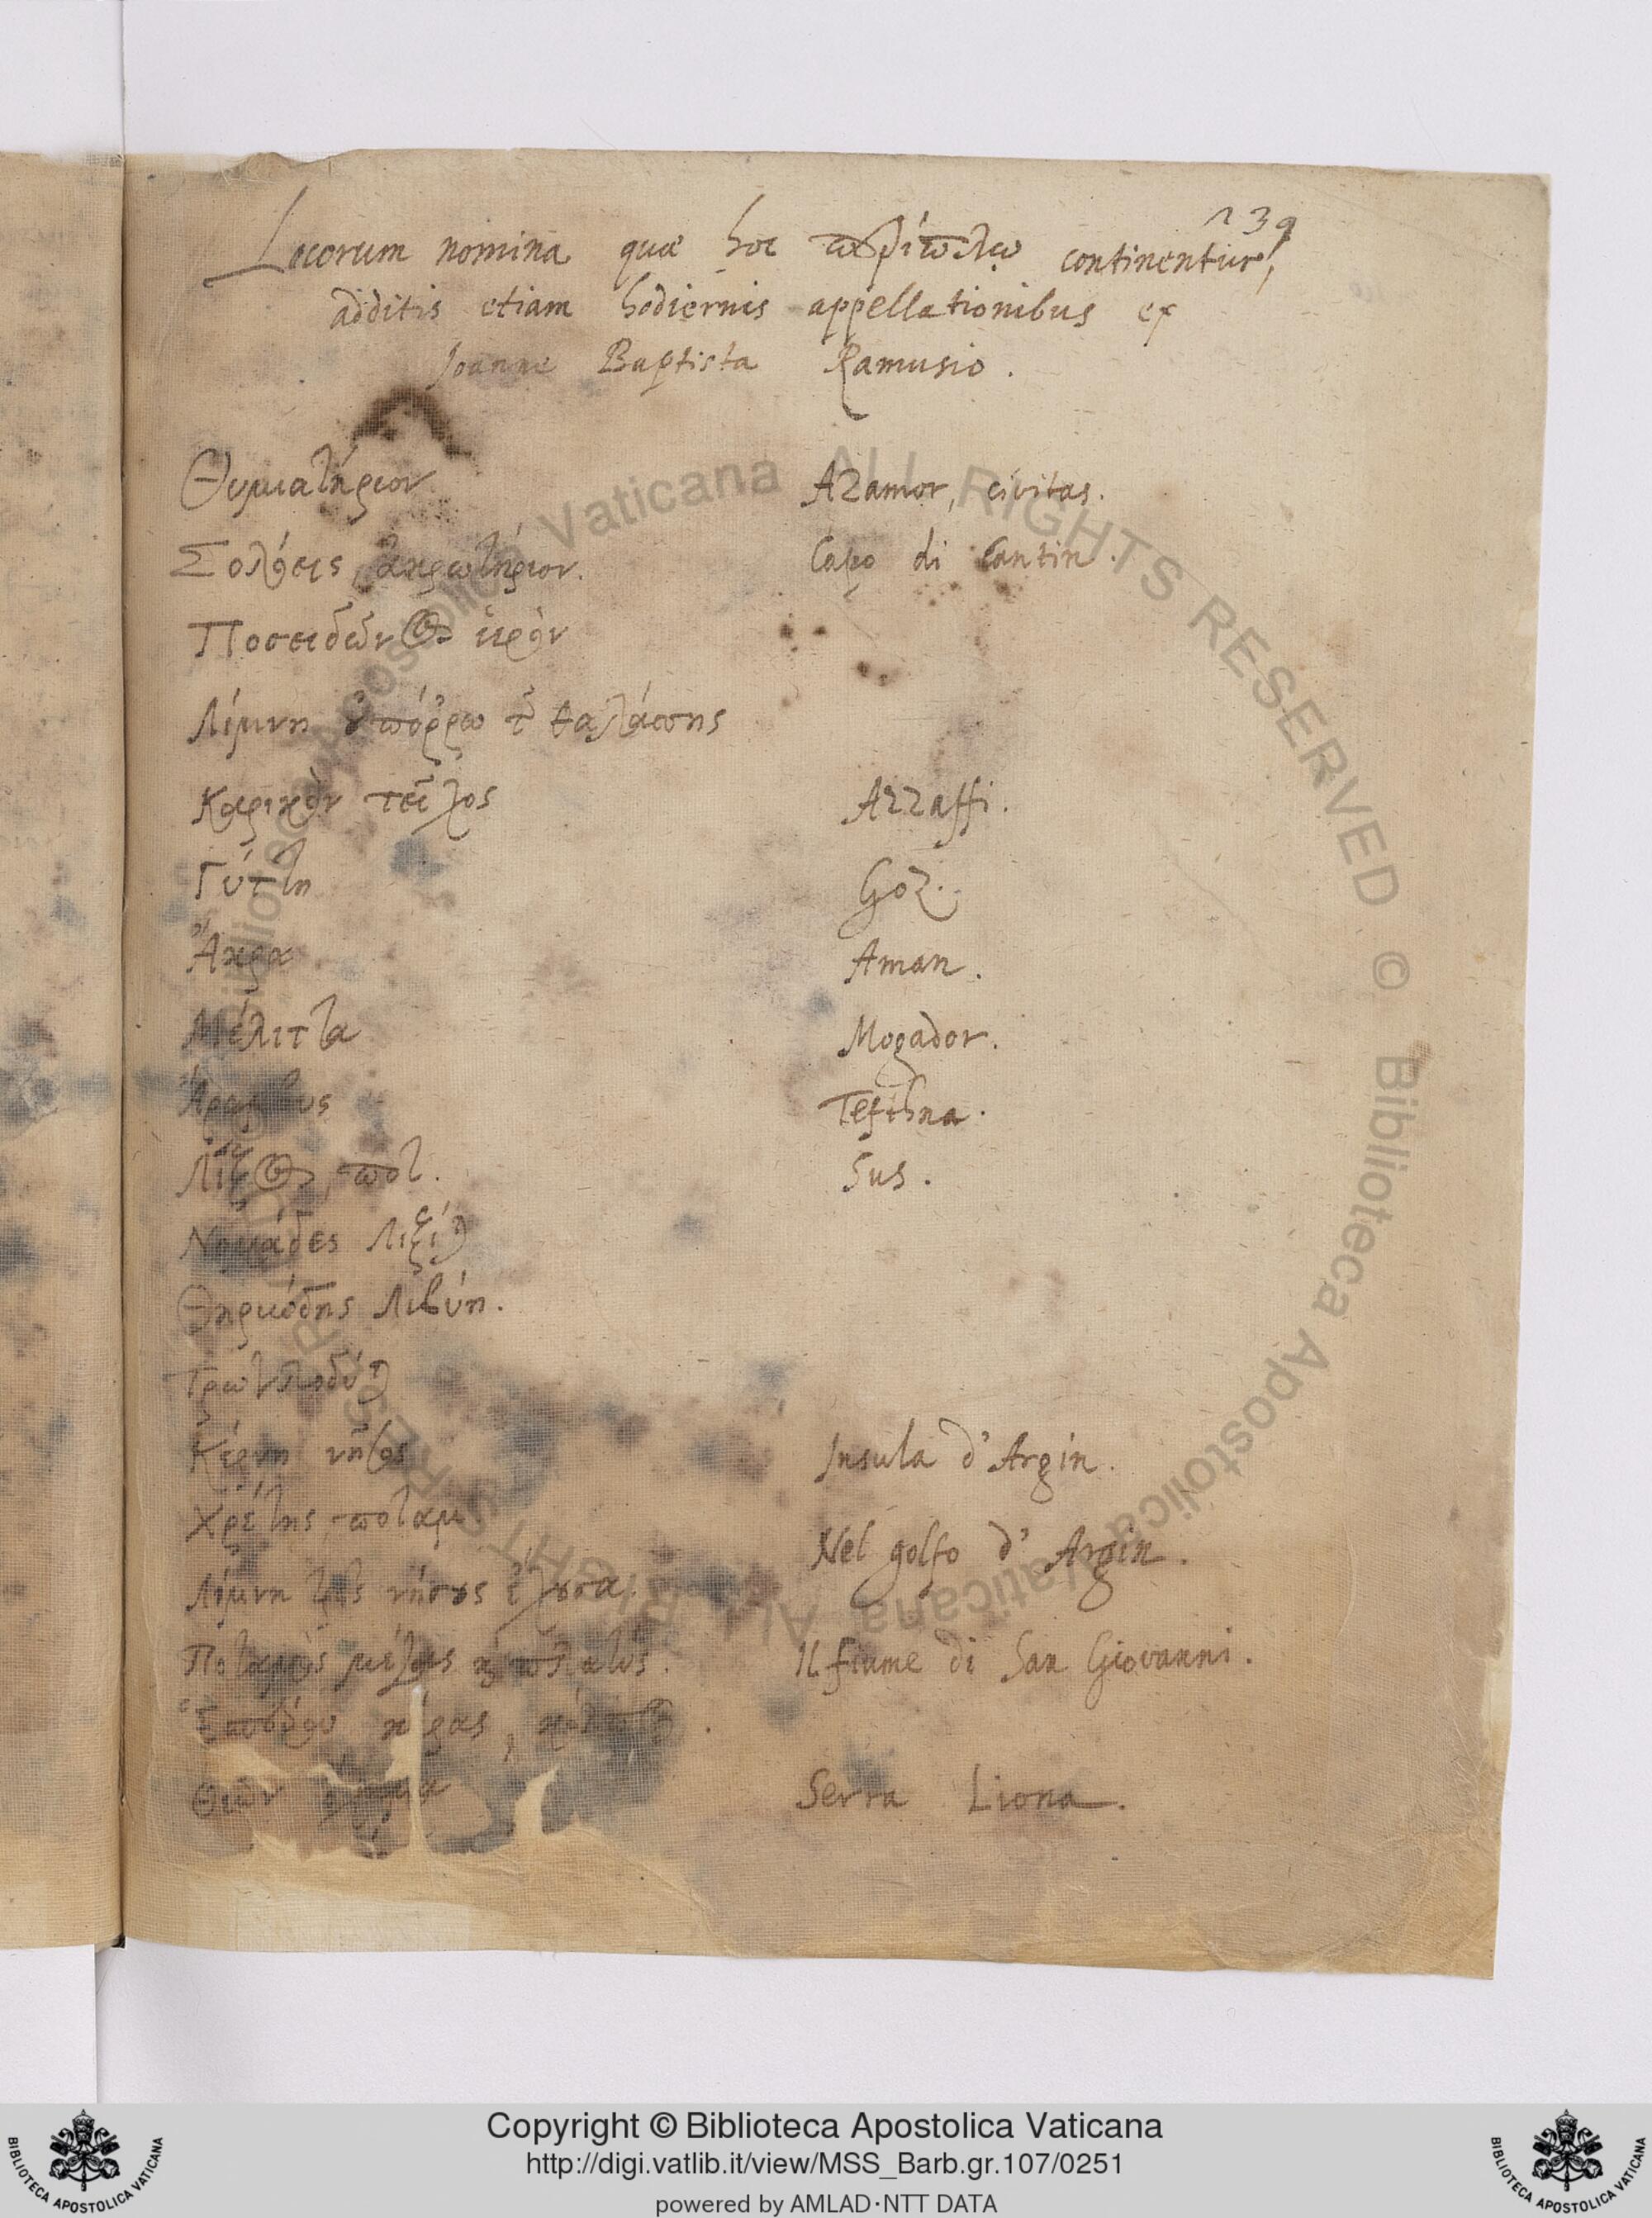 139
Locorum nomina quæ hoc περίπλῳ continentur,
additis etiam hodiernis appellationibus ex
Joanne Baptista Ramusio.
Θυμιατήριον Azamor, civitas.
Σολόεις, ἀκρωτήριον. Capo di Cantin.
Ποσειδῶνος ἱερὸν
Λίμνη οὐ πόῤῥω τῆς θαλάσσης
Καρικὸν τεῖχος Azzaffi.
Γύττη Goz.
Ἄκρα Aman.
Μέλιττα Mogador.
Ἄραμβυς Tefthna.
Λίξος, ποτ. Sus.
Νομάδες Λιξίται
Θηριώδης Λιβύη.
Τρωγλοδύται
Κέρνη νῆσος Insula d'Argin.
Χρέτης ποταμ
Nel golfo d' Argin.
Λίμνη τρεῖς νήσους ἔχουσα.
Ποταμὸς μέγας καὶ πλατύς. Il fiume di San Giovanni.
Ἑσπέρου κέρας, κόλπος.
Θεῶν ὄχημα Serra Liona.
Copyright © Biblioteca Apostolica Vaticana
http://digi.vatlib.it/view/MSS_Barb.gr.107/0251
powered by AMLAD·NTT DATA
BIBLIOTECA APOSTOLICA VATICANA
BIBLIOTECA APOSTOLICA VATICANA
Biblioteca Apostolica Vaticana ALL RIGHTS RESERVED ©
Biblioteca Apostolica Vaticana ALL RIGHTS RESERVED ©